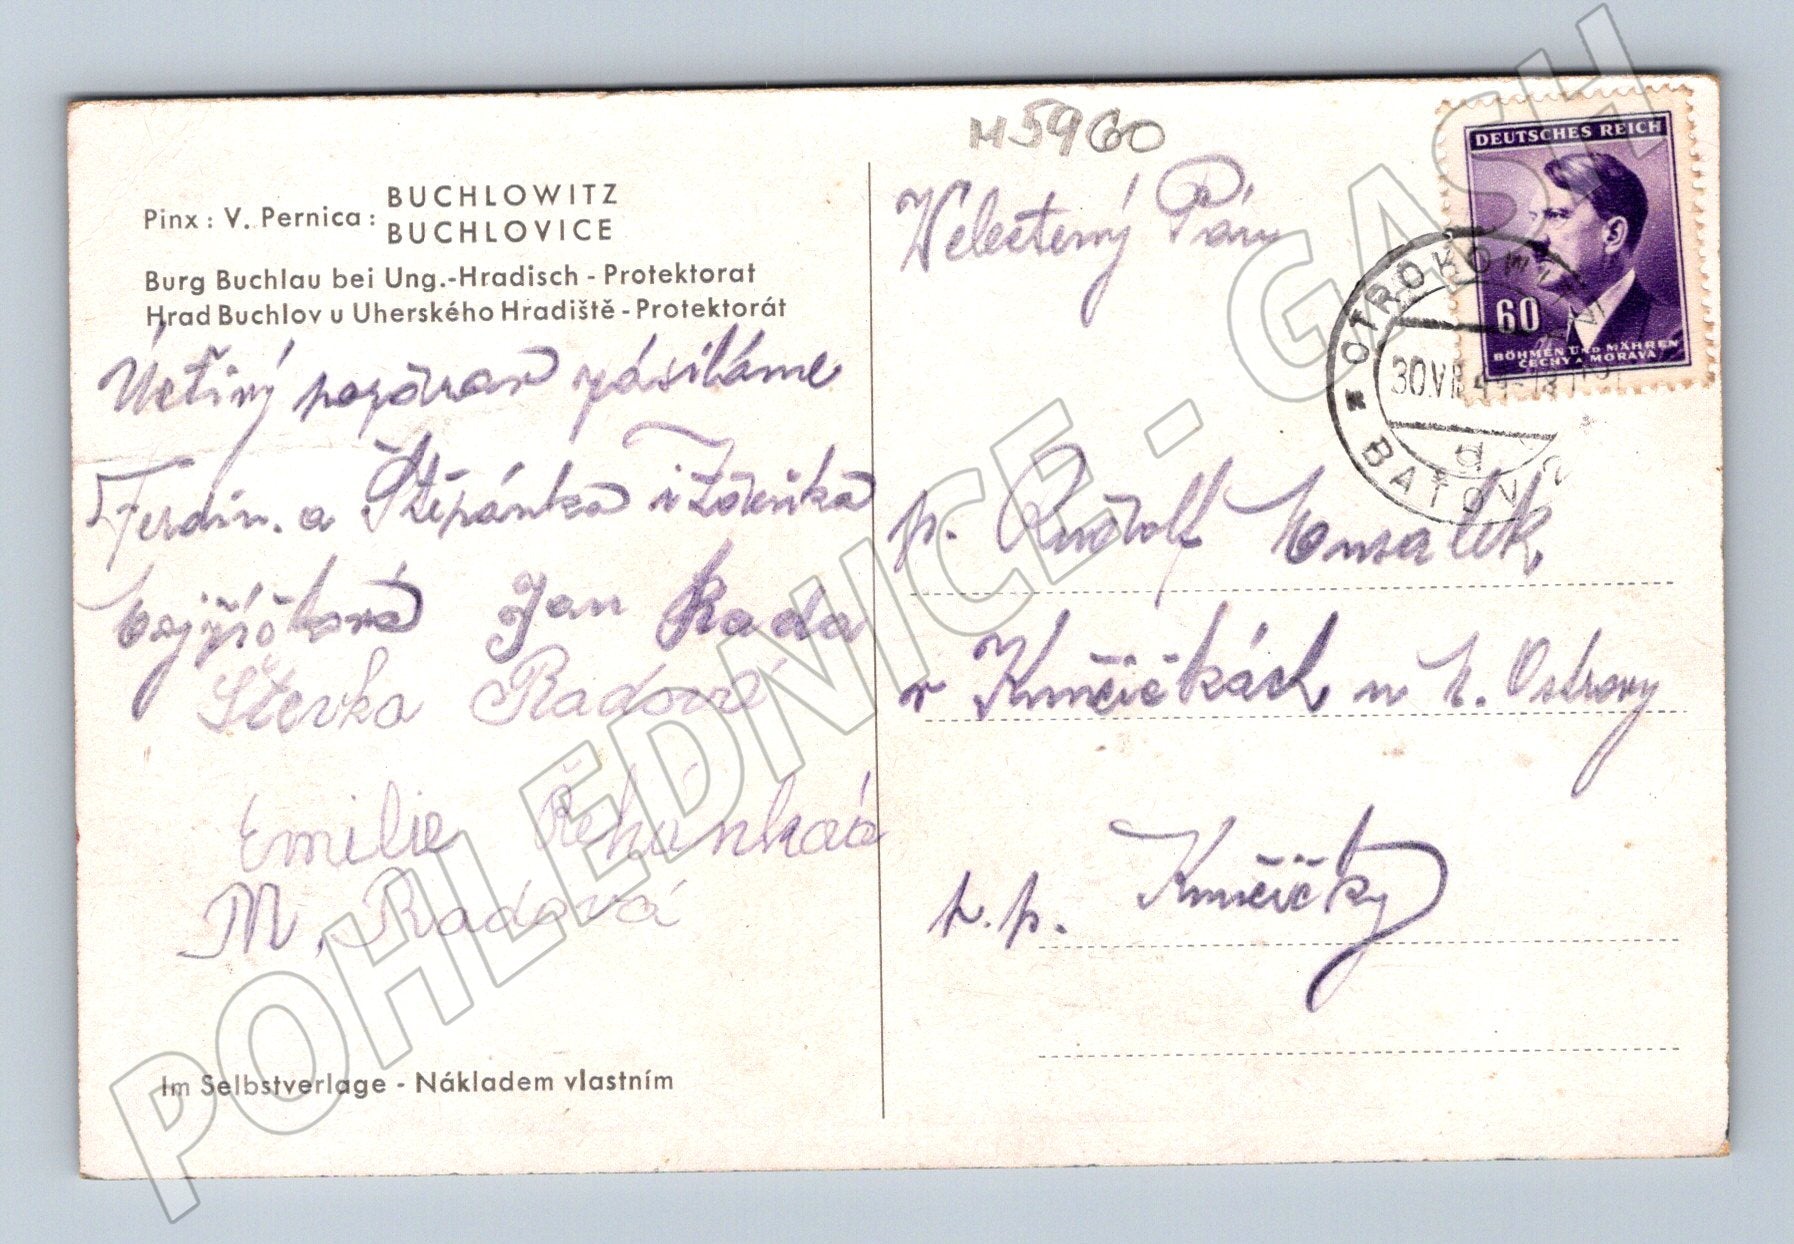 M5960
Pinx : V. Pernica :
BUCHLOWITZ
BUCHLOVICE
Burg Buchlau bei Ung.-Hradisch - Protektorat
Hrad Buchlov u Uherského Hradiště - Protektorát
Uctivý pozdrav zasíláme
Ferdin. a Štěpánka i Zdeňka
Jan Rada
Števka Radová
Emilie
M. Radová
Im Selbstverlage - Nákladem vlastním
Velectený Pán
p. Rudolf
v Kunčičkách u M. Ostravy
p. p. Kunčičky
DEUTSCHES REICH
60
BÖHMEN UND MÄHREN
ČECHY A MORAVA
OTROKOW
BAŤOV
30.VI
d
POHLEDNICE - GASH